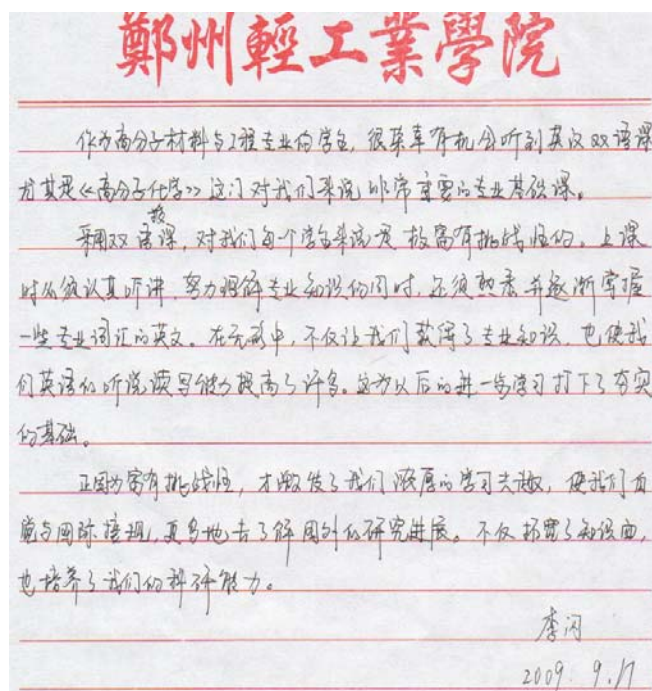 鄭州輕工業學院
作为高分子材料与工程专业的学生，很荣幸有机会听到英汉双语课
尤其是《高分子化学》这门对我们来说非常重要的专业基础课。
采用双语授课，对我们每个学生来说是极富有挑战性的。上课
时必须认真听讲，努力理解专业知识的同时，还须熟悉并逐渐掌握
一些专业词汇的英文。在无形中，不仅让我们获得了专业知识，也使我
们英语的听说读写能力提高了许多。这为以后的进一步学习打下了夯实
的基础。
正因为富有挑战性，才激发了我们浓厚的学习兴趣，使我们自
觉与国际接轨，更多地去了解国外的研究进展。不仅拓宽了知识面，
也培养了我们的科研能力。
李闪
2009. 9.17